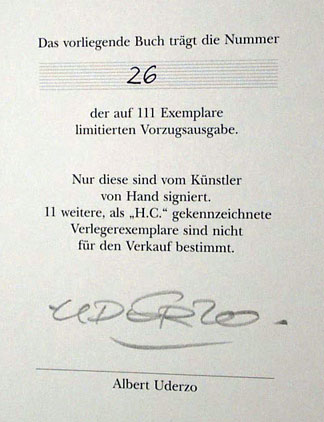 Das vorliegende Buch trägt die Nummer
26
der auf 111 Exemplare
limitierten Vorzugsausgabe.
Nur diese sind vom Künstler
von Hand signiert.
11 weitere, als „H.C.“ gekennzeichnete
Verlegerexemplare sind nicht
für den Verkauf bestimmt.
UDERZO.
Albert Uderzo